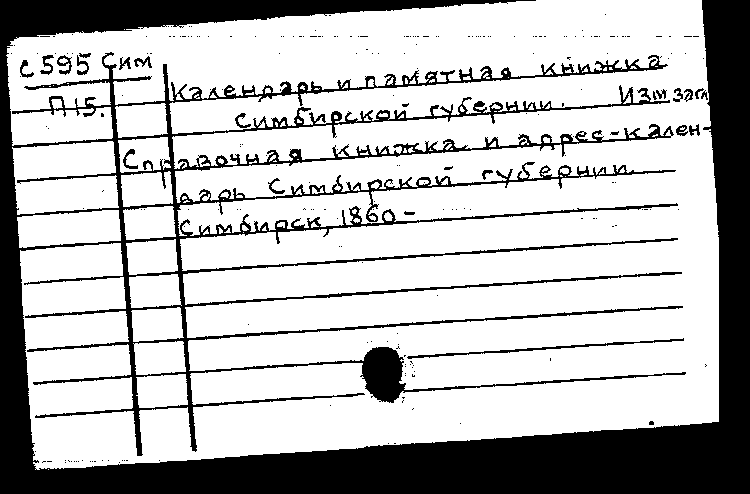 С595 Сим
П15.
Календарь и памятная книжка
Симбирской губернии. Изм загл
Справочная книжка и адрес-кален-
дарь Симбирской губернии.
Симбирск, 1860-